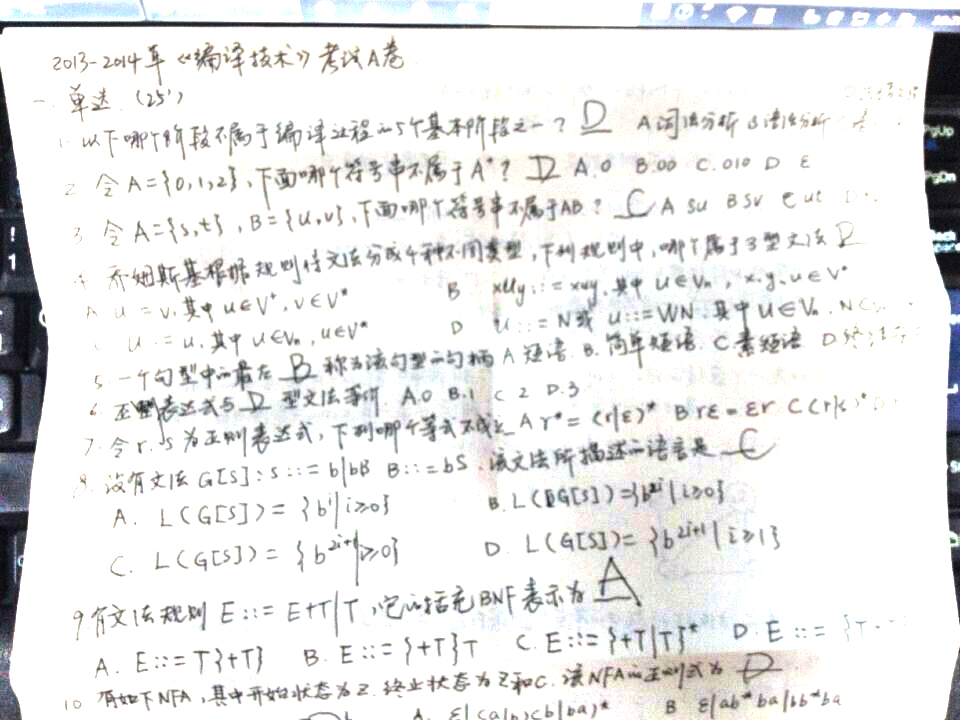 2013-2014年《编译技术》考试A卷
一 单选 (25')
1 以下哪个阶段不属于编译过程的5个基本阶段之一? D A 词法分析 B 语法分析
2 令A={0,1,2},下面哪个符号串不属于A*? D A.0 B.00 C.010 D ε
3 令A={s,t},B={u,v},下面哪个符号串不属于AB? C A su B sv C ut
4 乔姆斯基根据规则将文法分成4种不同类型,下列规则中,哪个属于3型文法 D
A u = v,其中 u∈V⁺,v∈V* B xUy::=xuy,其中 U∈Vn,x,y,u∈V*
C U::=u,其中 U∈Vn,u∈V* D U::=N或 U::=WN,其中U∈Vn,
5. 一个句型中的最左 B 称为该句型的句柄 A 短语 B.简单短语 C 素短语 D
6 正则表达式与 D 型文法等价 A.0 B.1 C 2 D.3
7. 令r.s为正则表达式,下列哪个等式不成立 A r*=(r|ε)* B rε=εr C (r|s)*
8 设有文法G[S]:S::=b|bB B::=bS,该文法所描述的语言是 C
A. L(G[S])={bⁱ|i≥0} B. L(G[S])={b²ⁱ|i≥0}
C. L(G[S])={b²ⁱ⁺¹|i≥0} D. L(G[S])={b²ⁱ⁺¹|i≥1}
9 有文法规则 E::=E+T|T,它的括充BNF表示为 A
A. E::=T{+T} B. E::={+T}T C. E::={+T|T}* D. E::={T
10 有如下NFA,其中开始状态为Z,终止状态为Z和C,该NFA的正则式为 D
A. ε|(a|b)(b|ba)* B ε|ab*ba|bb*ba